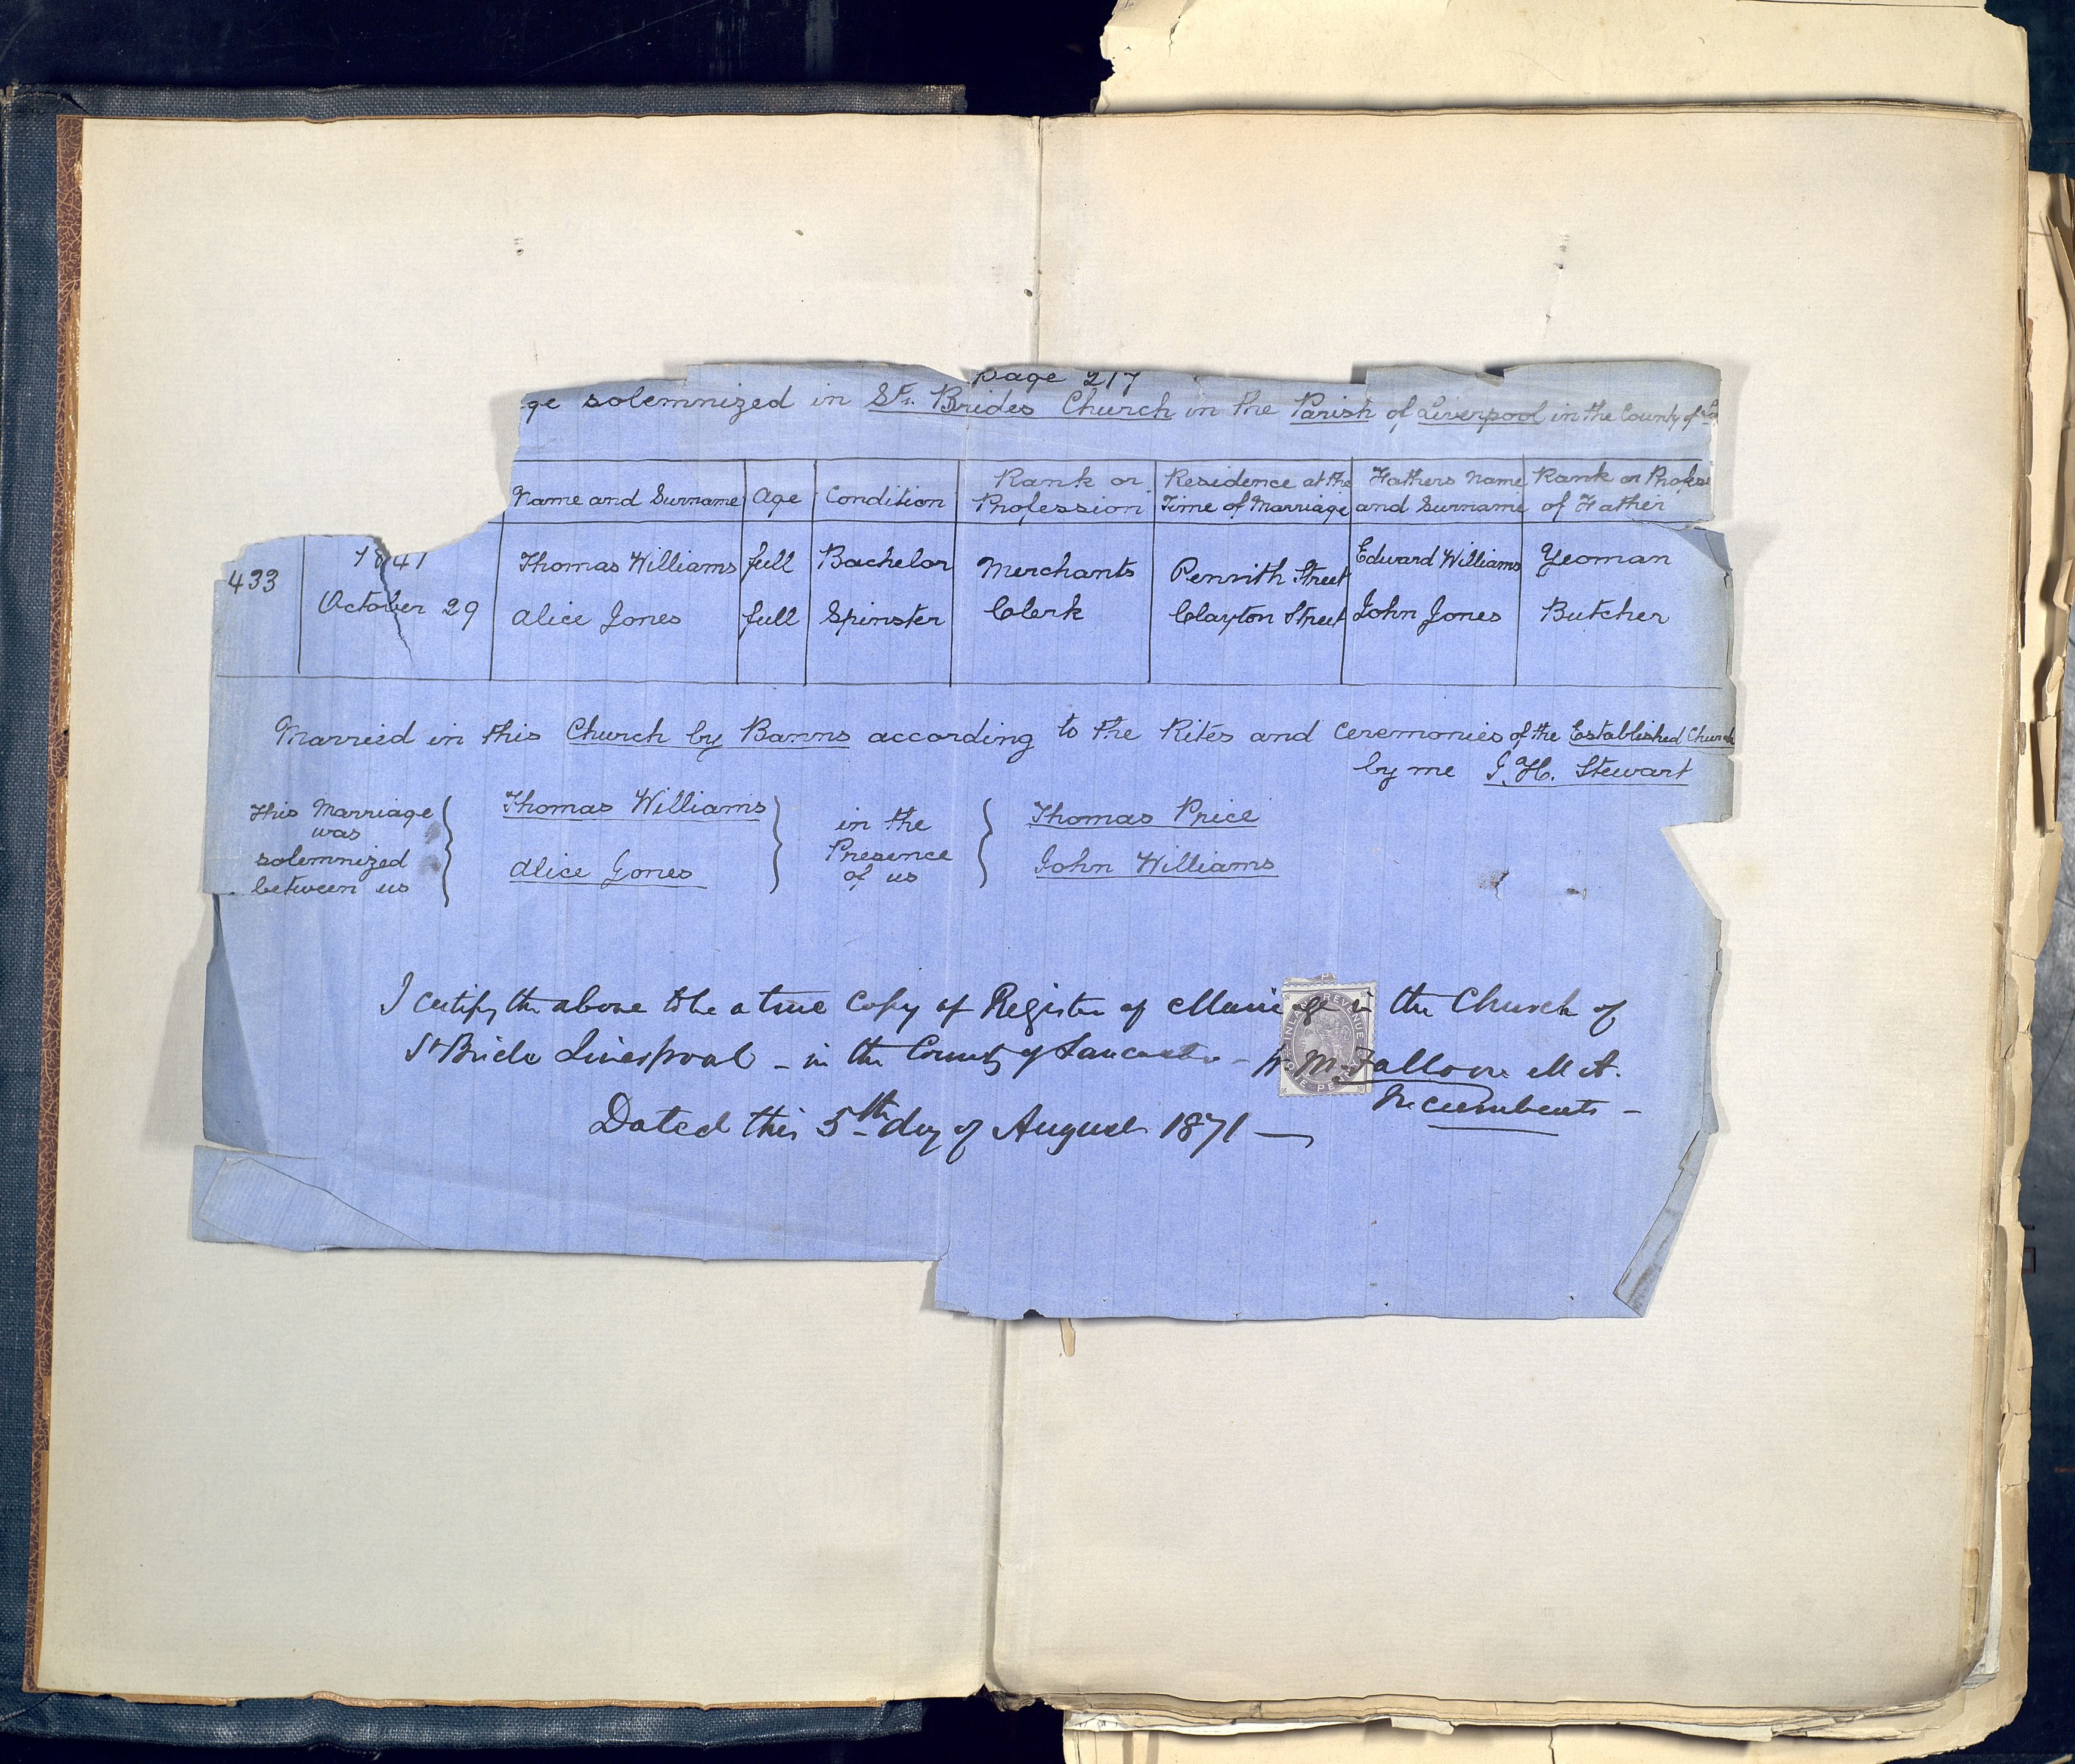 page 217
ge solemnized in St. Brides Church in the Parish of Liverpool in the County of
Name and Surname Age Condition Rank or Profession Residence at the Time of Marriage Fathers Name and Surname Rank or Profess of Father
433 1841 October 29
Thomas Williams full Bachelor Merchants Clerk Penrith Street Edward Williams Yeoman
Alice Jones full Spinster Clayton Street John Jones Butcher
Married in this Church by Banns according to the Rites and Ceremonies of the Established Church
by me J. H. Stewart
This Marriage was solemnized between us
Thomas Williams
Alice Jones
in the Presence of us
Thomas Price
John Williams
I certify the above to be a true Copy of Register of Marriage in the Church of
St Bride Liverpool - in the County of Lancaster - Falloon M A.
Incumbents -
Dated this 5th day of August 1871 —
INLAND REVENUE
ONE PENNY